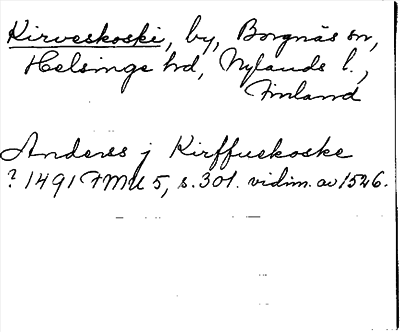 Kirveskoski, by, Borgnäs sn,
Helsinge hd, Nylands l.,
Finland
Anderss j Kirffueskoske
? 1491 FMU 5, s. 301. vidim. av 1526.